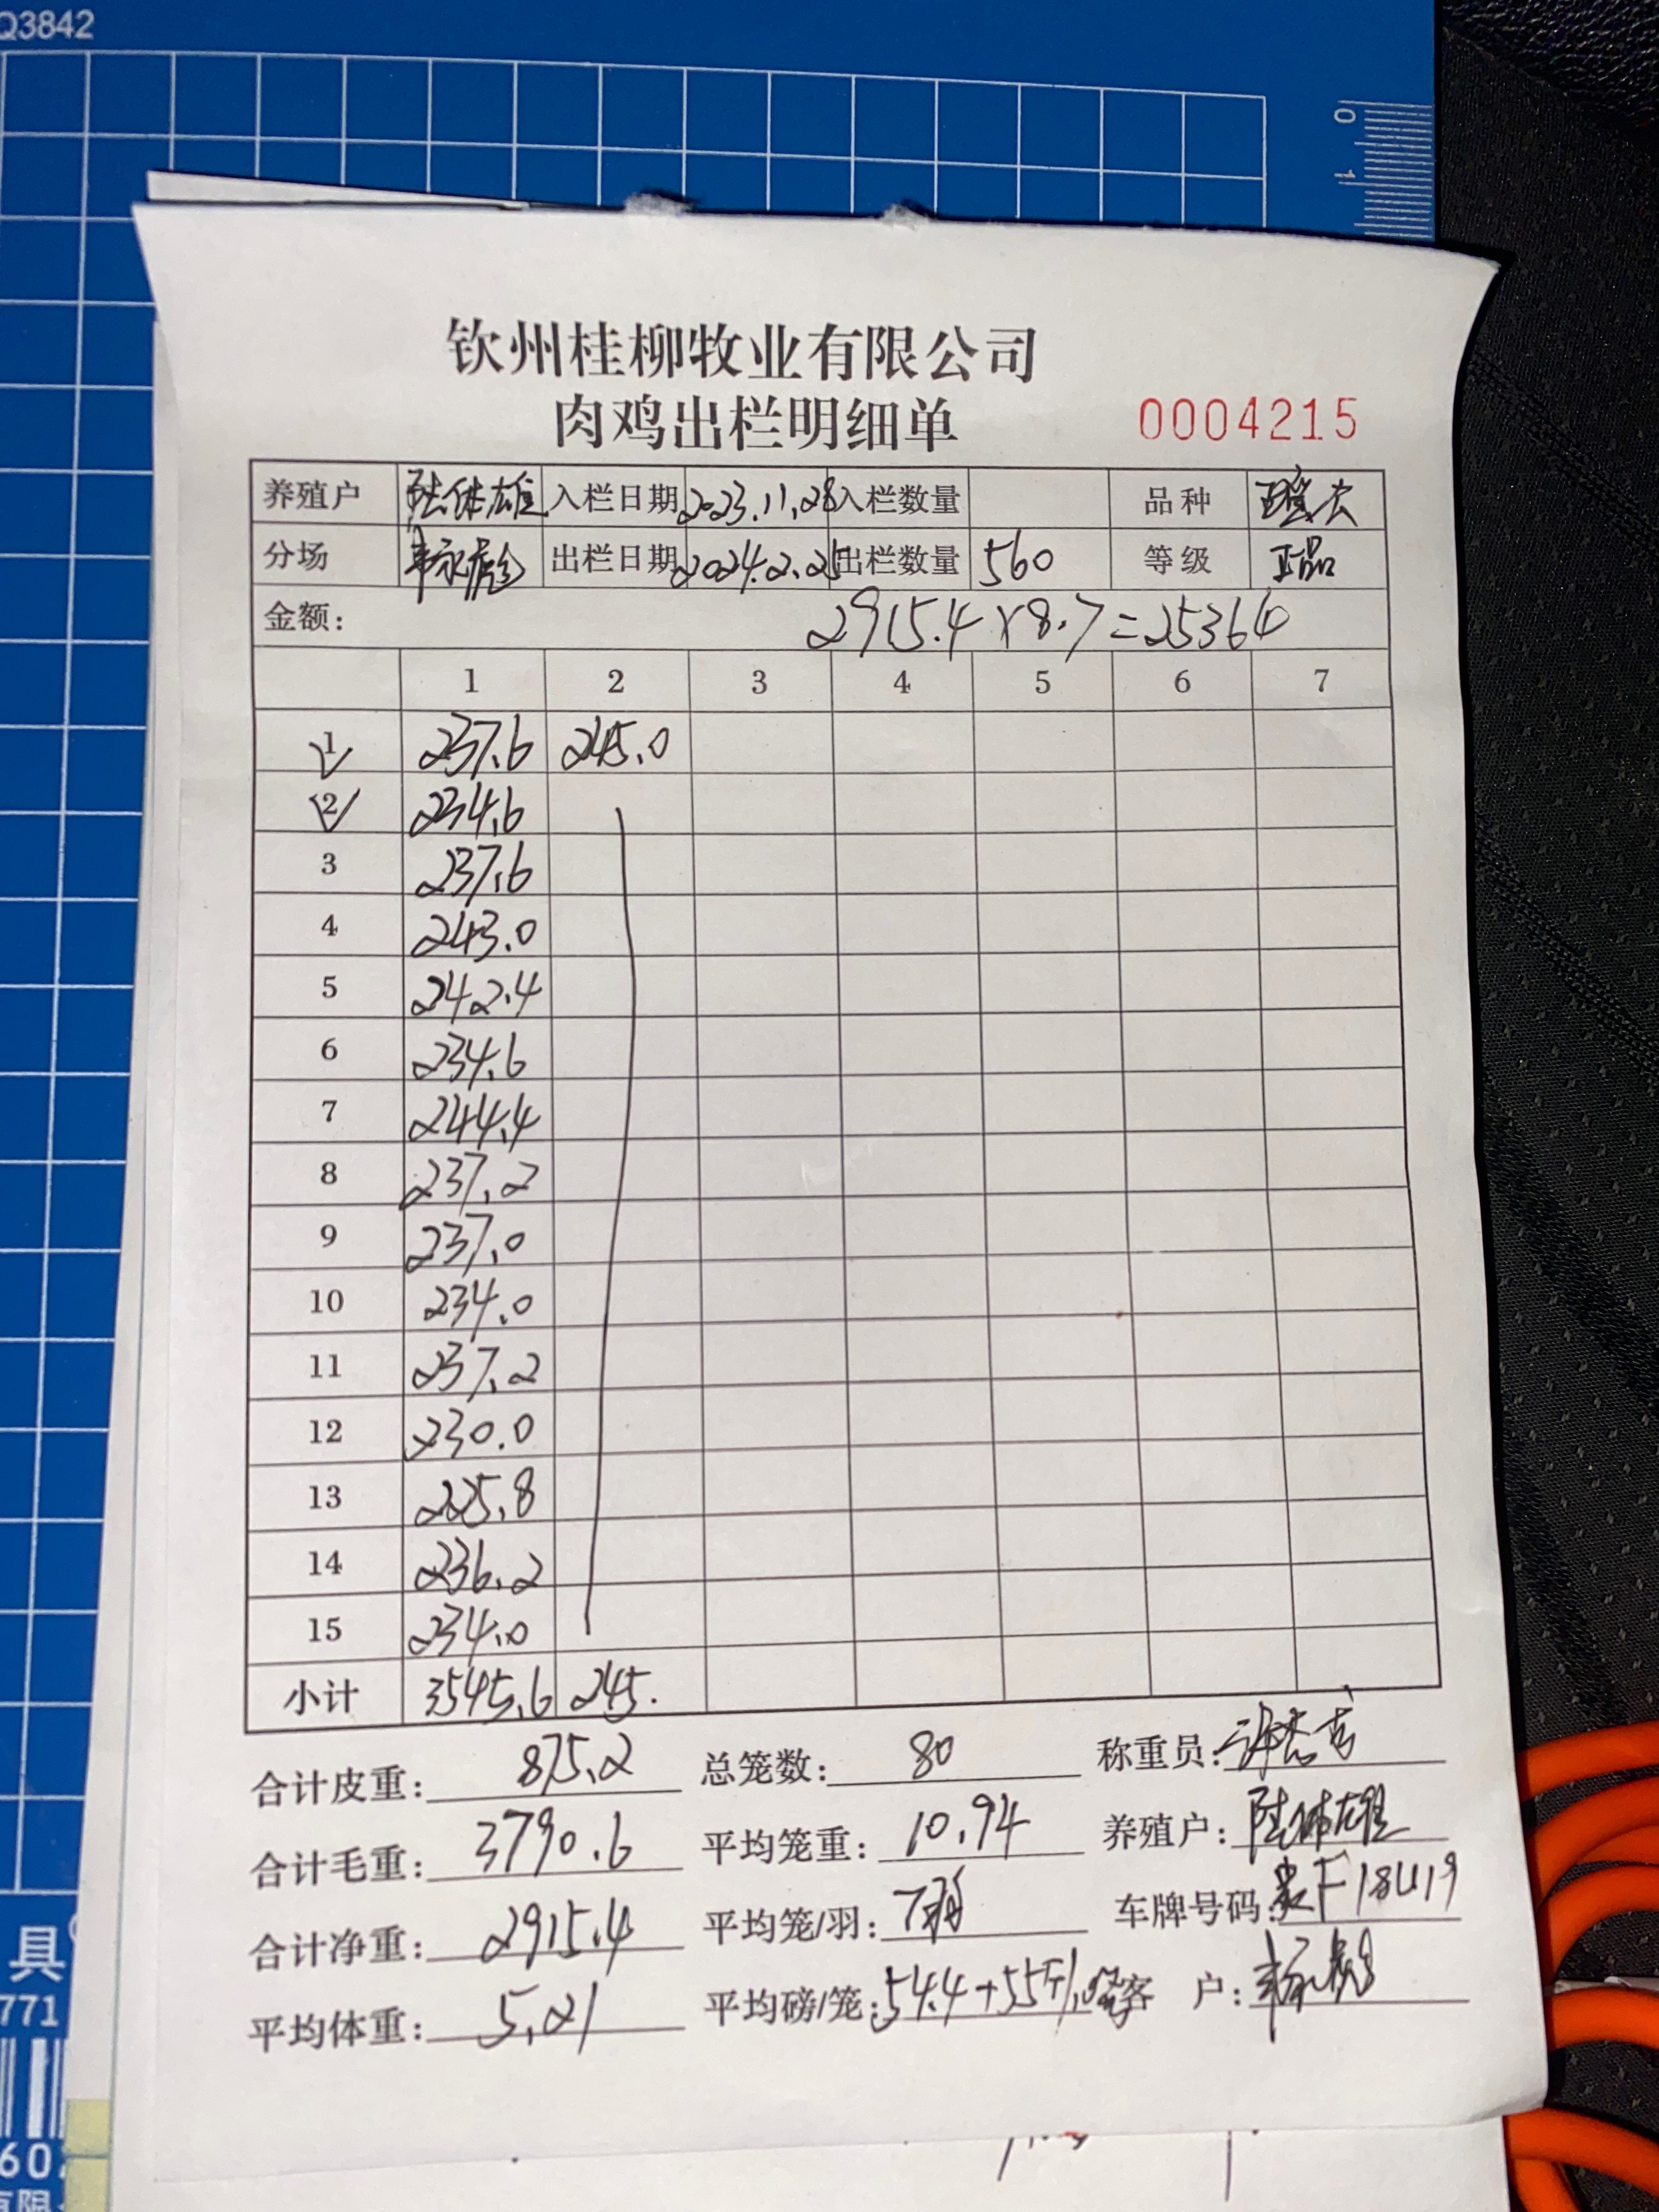 Q3842
0
1
钦州桂柳牧业有限公司
肉鸡出栏明细单 0004215
养殖户 陆体雄 入栏日期 2023.11.28 入栏数量 品种
分场 出栏日期 2024.2.25 出栏数量 560 等级 正品
金额: 2915.4×8.7=25364
1 2 3 4 5 6 7
1 237.6 245.0
2 234.6
3 237.6
4 243.0
5 242.4
6 234.6
7 244.4
8 237.2
9 237.0
10 234.0
11 237.2
12 230.0
13 225.8
14 236.2
15 234.0
小计 3545.6 245.
合计皮重: 875.2 总笼数: 80 称重员:
合计毛重: 3790.6 平均笼重: 10.94 养殖户: 陆体雄
合计净重: 2915.4 平均笼/羽: 7羽 车牌号码: F18U19
平均体重: 5.21 平均磅/笼: 54.4+55 客 户:
具
771
602
有限